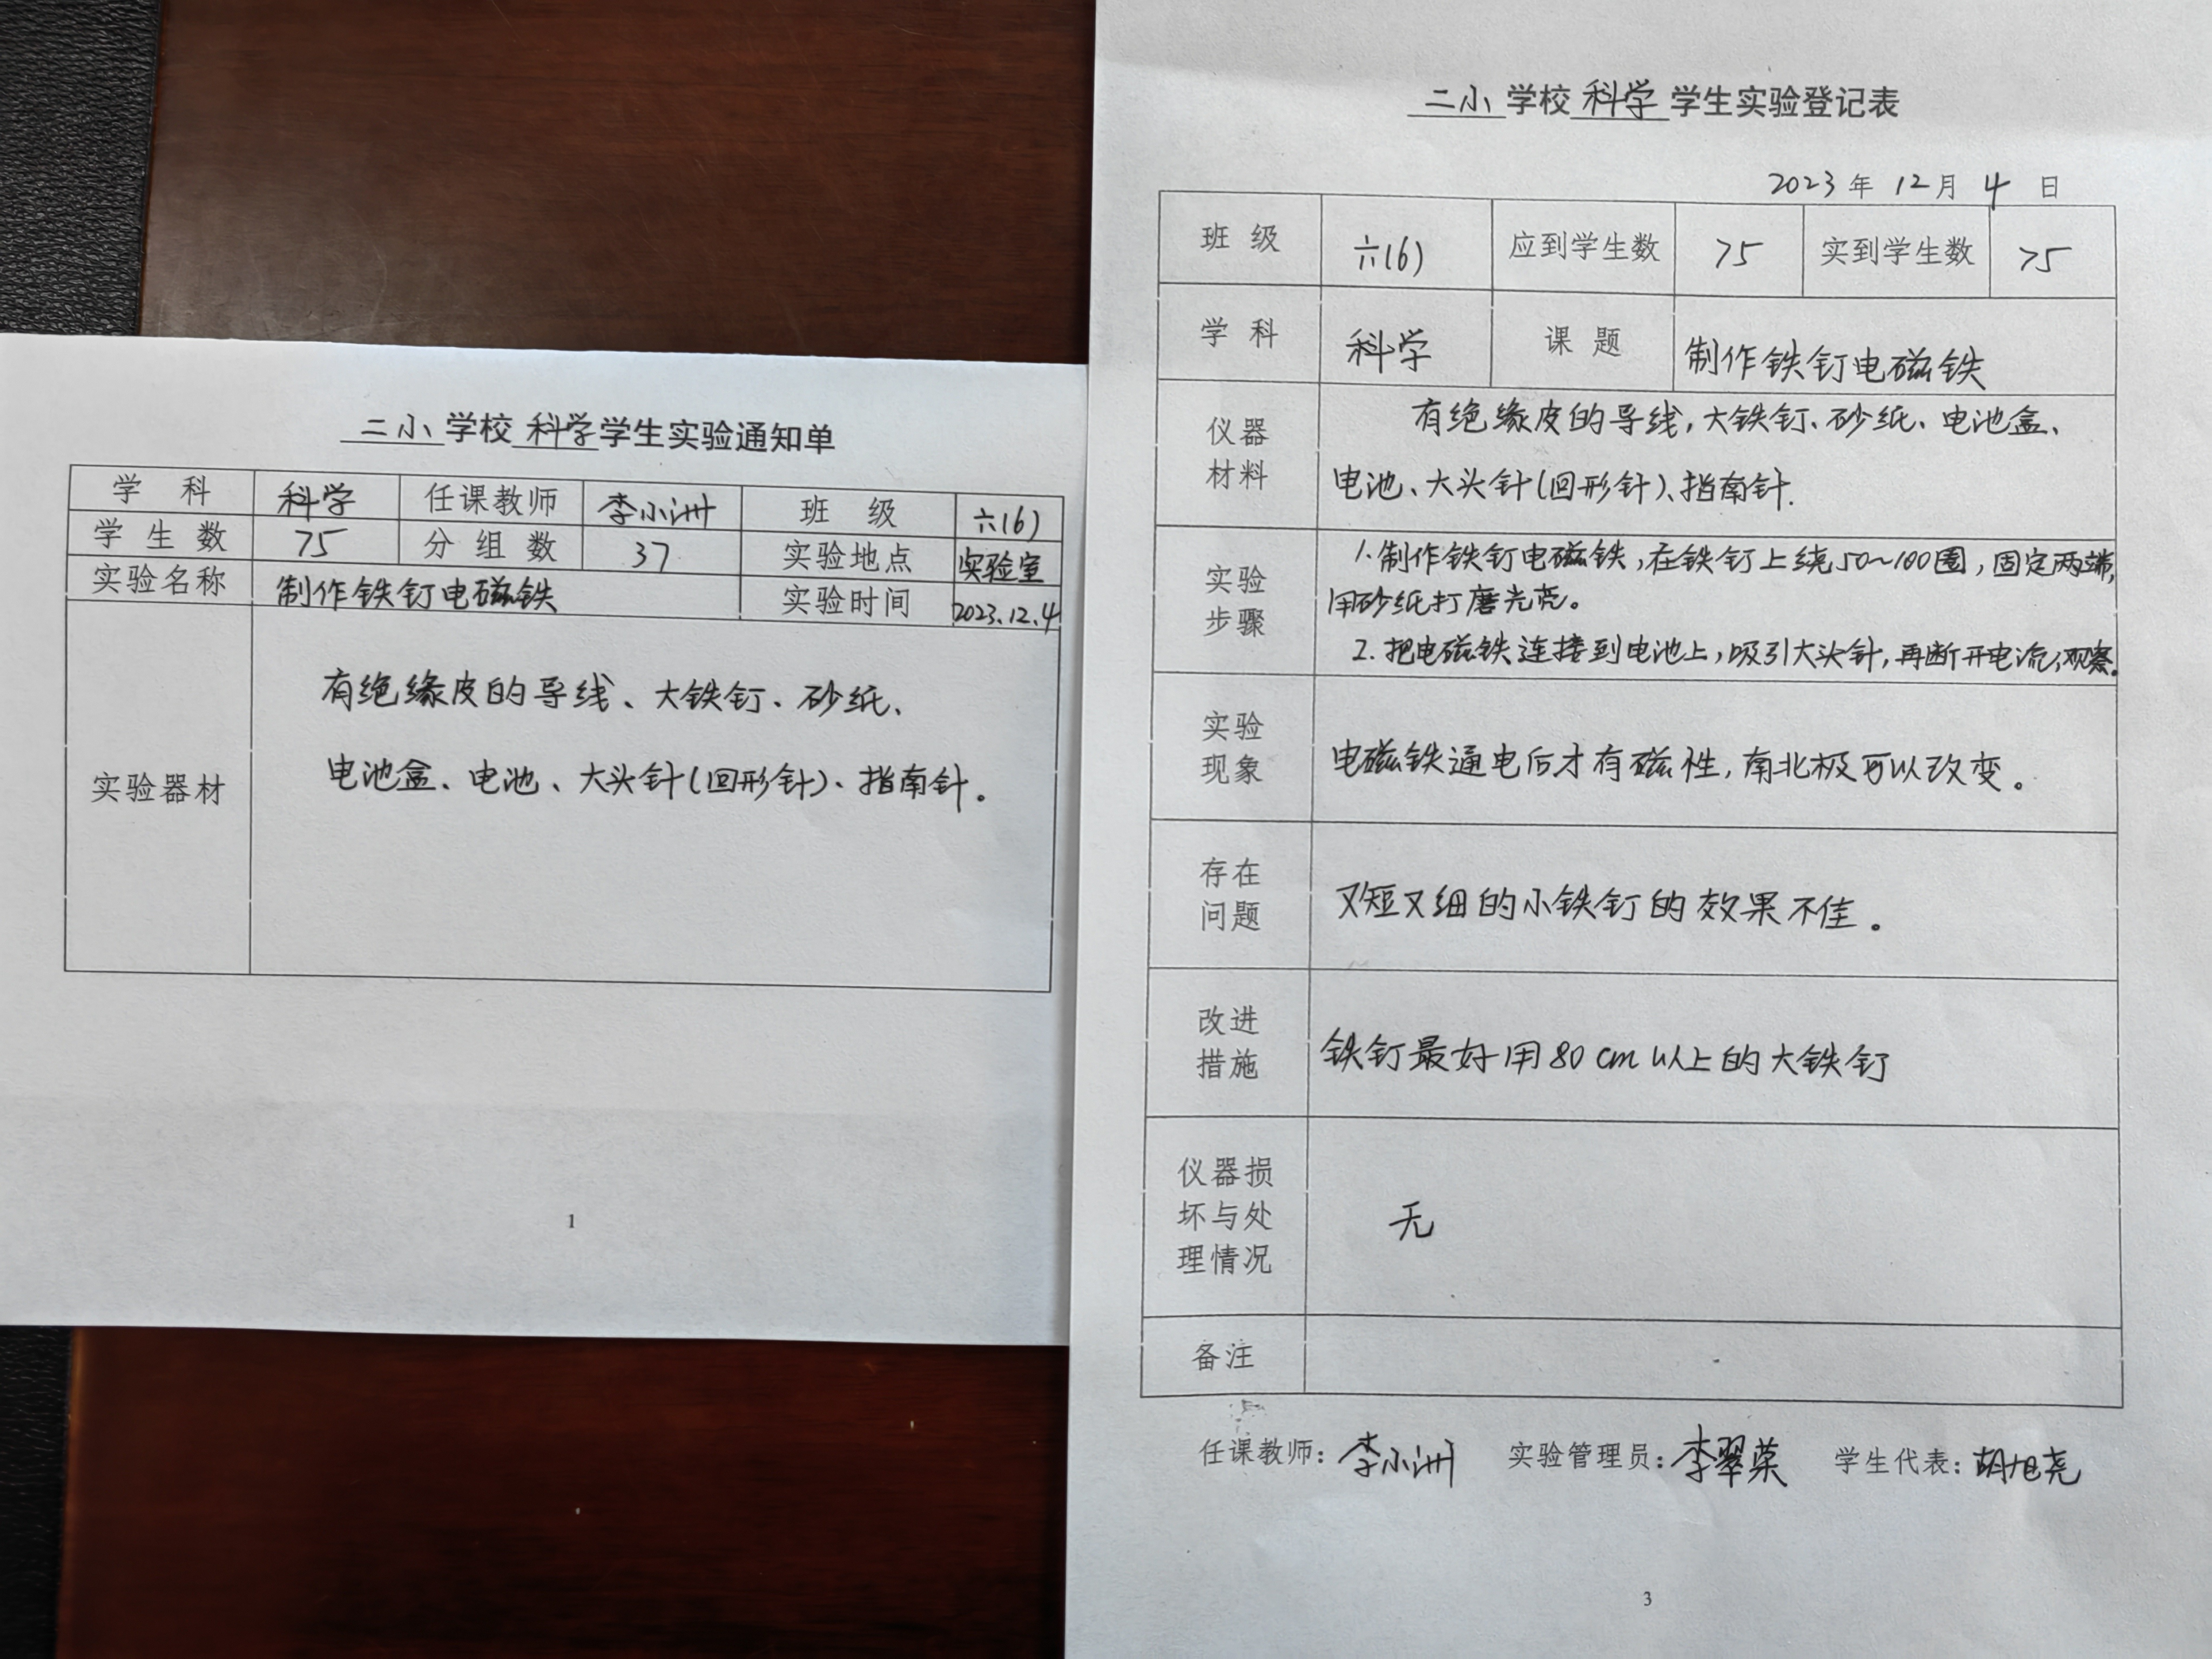 二小学校科学学生实验通知单
学 科 科学 任课教师 李小洲 班 级 六(6)
学 生 数 75 分 组 数 37 实验地点 实验室
实验名称 制作铁钉电磁铁 实验时间 2023.12.4
实验器材
有绝缘皮的导线、大铁钉、砂纸、
电池盒、电池、大头针(回形针)、指南针。
1
二小学校科学学生实验登记表
2023年12月4日
班 级 六(6) 应到学生数 75 实到学生数 75
学 科 科学 课 题 制作铁钉电磁铁
仪器
材料
有绝缘皮的导线,大铁钉、砂纸、电池盒、
电池、大头针(回形针)、指南针.
实验
步骤
1.制作铁钉电磁铁,在铁钉上绕50~100圈,固定两端,
用砂纸打磨光亮。
2.把电磁铁连接到电池上,吸引大头针,再断开电流,观察。
实验
现象
电磁铁通电后才有磁性,南北极可以改变。
存在
问题
又短又细的小铁钉的效果不佳。
改进
措施
铁钉最好用80cm以上的大铁钉
仪器损
坏与处
理情况
无
备注
任课教师:李小洲 实验管理员:李翠荣 学生代表:胡旭尧
3